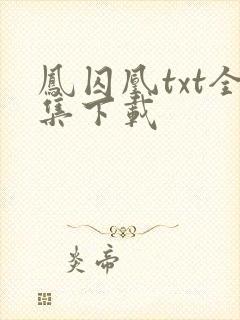 鳳囚凰txt全
集下載
炎帝